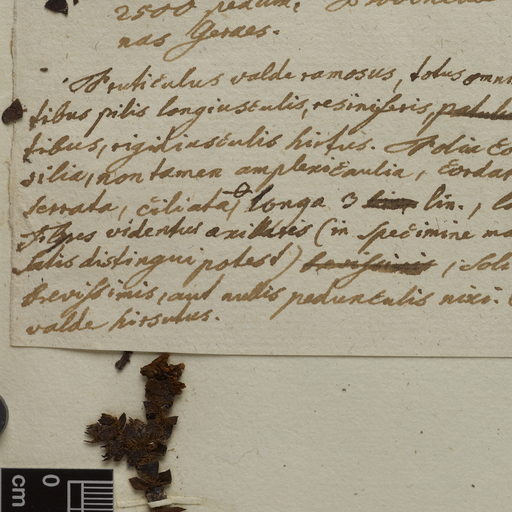 2500 pedum,
nas Geraes.
Fruticulus valde ramosus, totus omni
tibus pilis longiusculis, resiniferis, patulis
tibus, rigidiusculis hirtus. Folia
silia, non tamen amplexicaulia, cordat
serrata, ciliata, longa 3 lin.,
Flores videntur axillares (in specimine
distingui potest) brevissimis, soli
brevissimis, aut nullis pedunculis nixi.
valde hirsutus.
0
cm